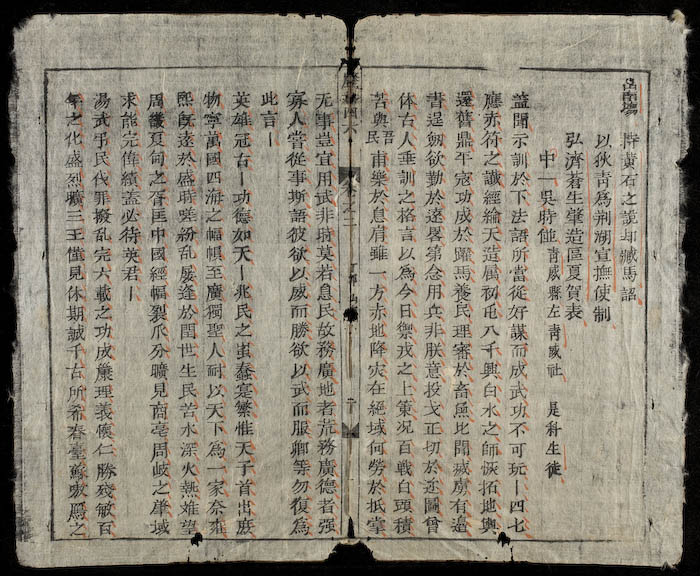 陣黃石之說却臧馬詔
以狄青為荆湖宣撫使制
弘濟蒼生肇造區夏賀表
中一吳時 青威縣左青威社 是科生徒
蓋聞示訓於下法語所當從好謀而成武功不可玩一四七
應赤符之讖經綸天造属初屯八千興白水之師恢拓地輿
還舊鼎平寇功成於躍馬養民理審於畜魚比聞滅虜有這
書逞劒欲勤於遠畧第念用兵非朕意投戈正切於近圖曾
体古人垂訓之格言以為今日禦戎之上策况百戰白頭積
苦與民吾甫樂於息肩雖一方赤地降灾在絕域何勞於抵掌
无事豈宜用武非時莫若息民故務廣地者荒務廣德者强
寡人嘗從事斯語彼欲以威而勝欲以武而服卿等勿復為
此言一
英雄冠古一功德如天一兆民之蚩蠢寔繁惟天子首出庶
物寧萬國四海之幅幀至廣獨聖人耐以天下為一家奈雍
熙旣遠於盛時嗟紛乱屡逢於閏世生民苦水深火熱雉望
周徽夏甸之吞匡中國經幅裂瓜分曠見商亳周岐之肇域
求能完偉績蓋必待英君一
湯武弔民伐罪撥乱完大載之功成廉理義懷仁勝殘敏百
年之化盛烈曠三王僅見休期誠千古所希春臺蘇